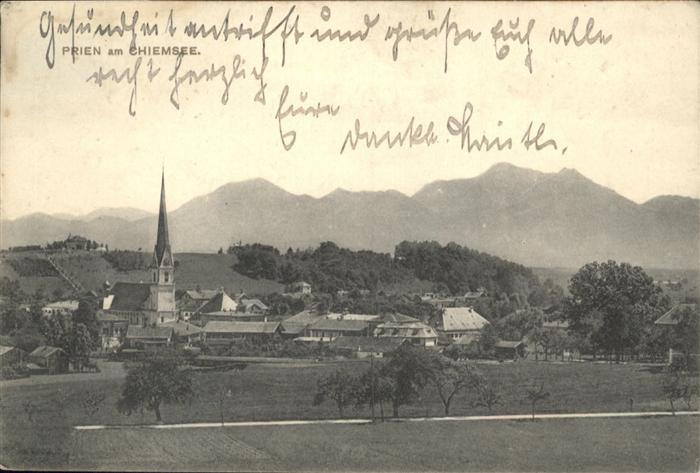 Gesundheit antrifft und grüße Euch alle
PRIEN am CHIEMSEE.
recht herzlich
Eure
dankb.